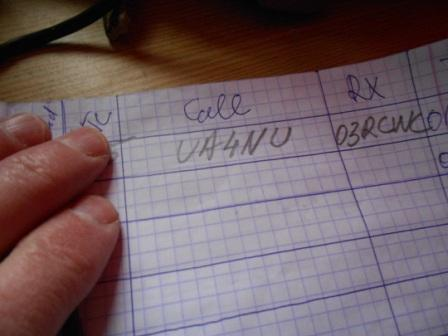 Call RX
UA4NU 03RCWC